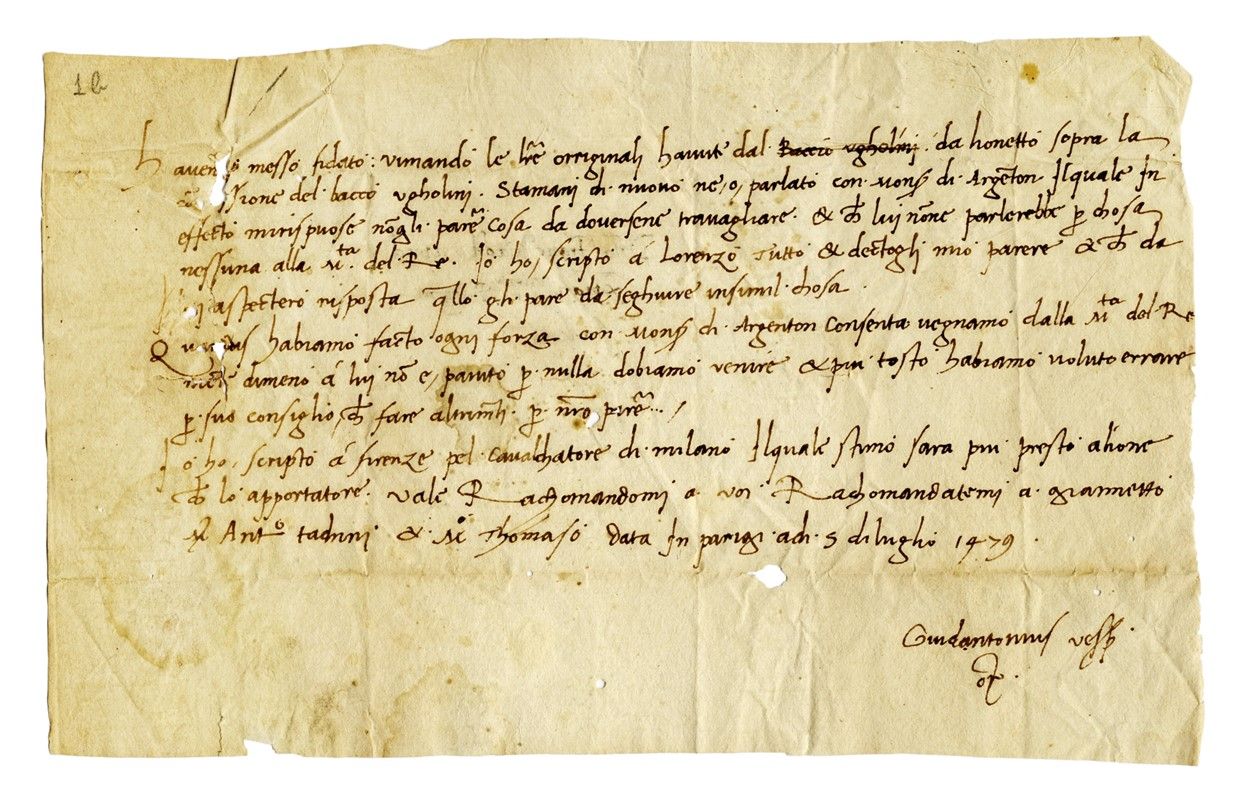 1 b
Haven messo fidato: vimando le lr̃e originali havute dal Baccio vgholini da lionetto sopra la
sione del bacco vgholini. Stamani di nuovo ne, o, parlato con monsʳ di Argenton Ilquale In
effecto mirispuose nõgli parẽ cosa da doversene travagliare. & ch̃ lui nõne parlerebbe p̱ chosa
nessuna alla Mᵗᵃ. del Re. Io ho, scripto á Lorenzo tutto & dectogli mio parere & ch̃ da
aspectero risposta q̃llo gli pare da seghuire insimil chosa.
habiamo facto ogni forza con monsʳ di Argenton Consenta vegnamo dalla Mᵗᵃ del Re
dimeno á lui nõ e, paruto p̱ nulla dobiamo venire & piu tosto habiamo voluto errare
p̱ suo consiglio, ch̃ fare altrimẽti. p̱ nr̃o parẽ...
Io ho, scripto á firenze pel cavalchatore di milano Ilquale stimo sara piu presto alione
ch̃ lo apportatore. Vale Rachomandomi a voi Rachomandatemi a giannetto
Antᵒ tadini & Mᵒ Thomaso Data In parigi adi 5 diluglio 1479.
Guidantonius vesp̱.
or.